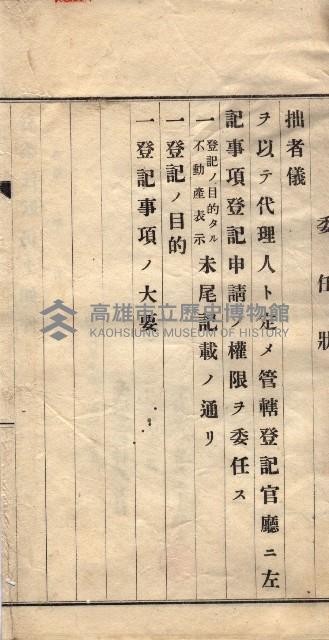 委任狀
拙者儀
ヲ以テ代理人ト定メ管轄登記官廳ニ左
記事項登記申請ノ權限ヲ委任ス
一 登記ノ目的タル不動産表示 末尾記載ノ通リ
一 登記ノ目的
一 登記事項ノ大要
高雄市立歷史博物館
KAOHSIUNG MUSEUM OF HISTORY